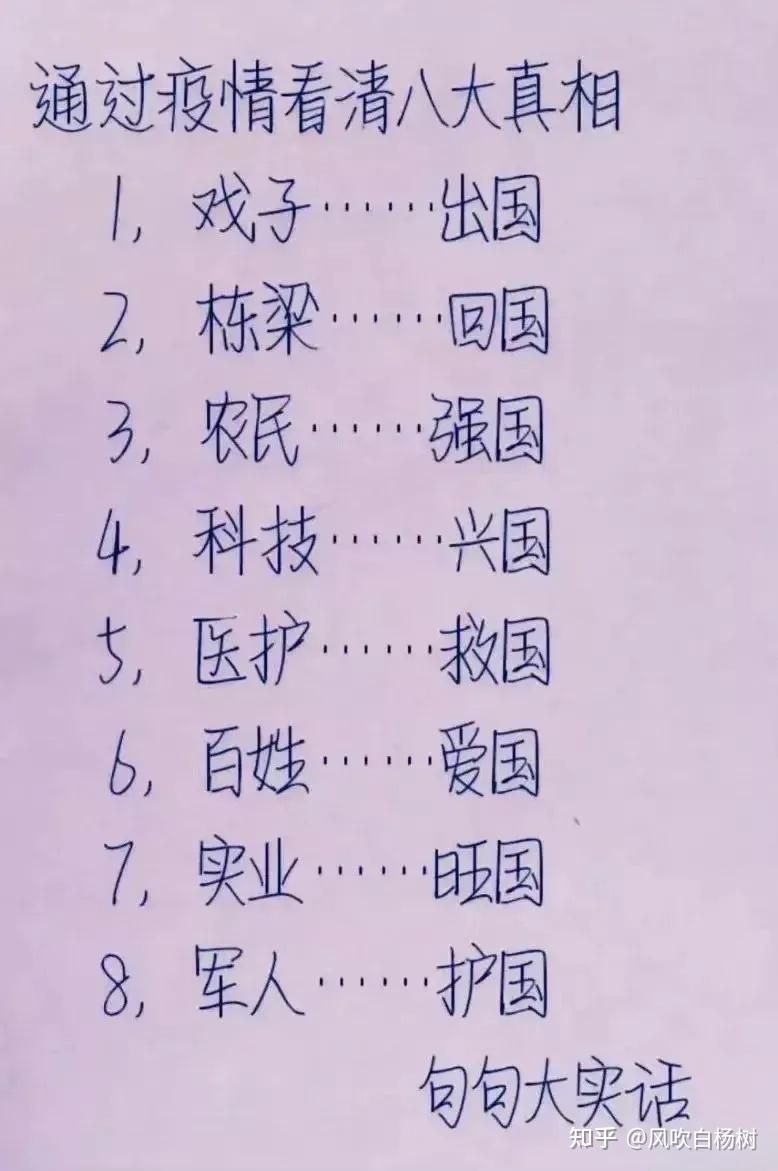 通过疫情看清八大真相
1, 戏子……出国
2, 栋梁……回国
3, 农民……强国
4, 科技……兴国
5, 医护……救国
6, 百姓……爱国
7, 实业……旺国
8, 军人……护国
句句大实话
知乎 @风吹白杨树